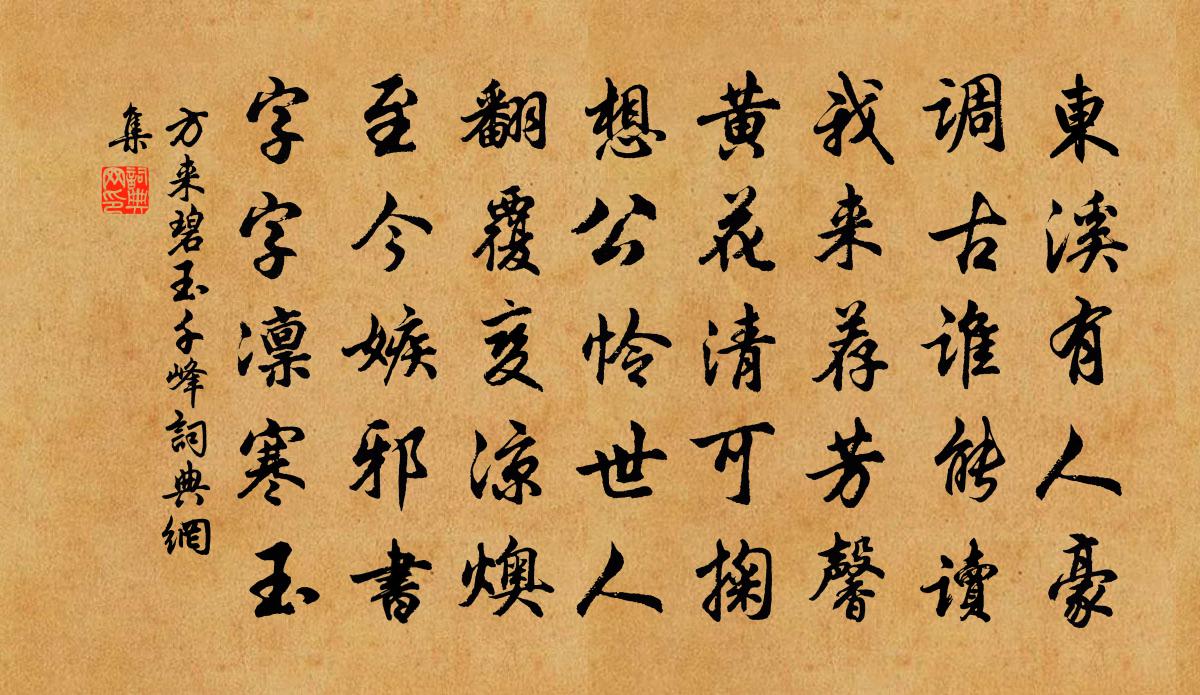 東溪有人豪
調古谁能讀
我来荐芳馨
黄花清可掬
想公怜世人
翻覆变凉燠
至今嫉邪書
字字凛寒玉
方来碧玉千峰詞典網
集
詞典
网印